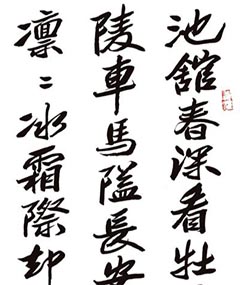 池館春深看牡
陵車馬隘長安
凛〻冰霜際却